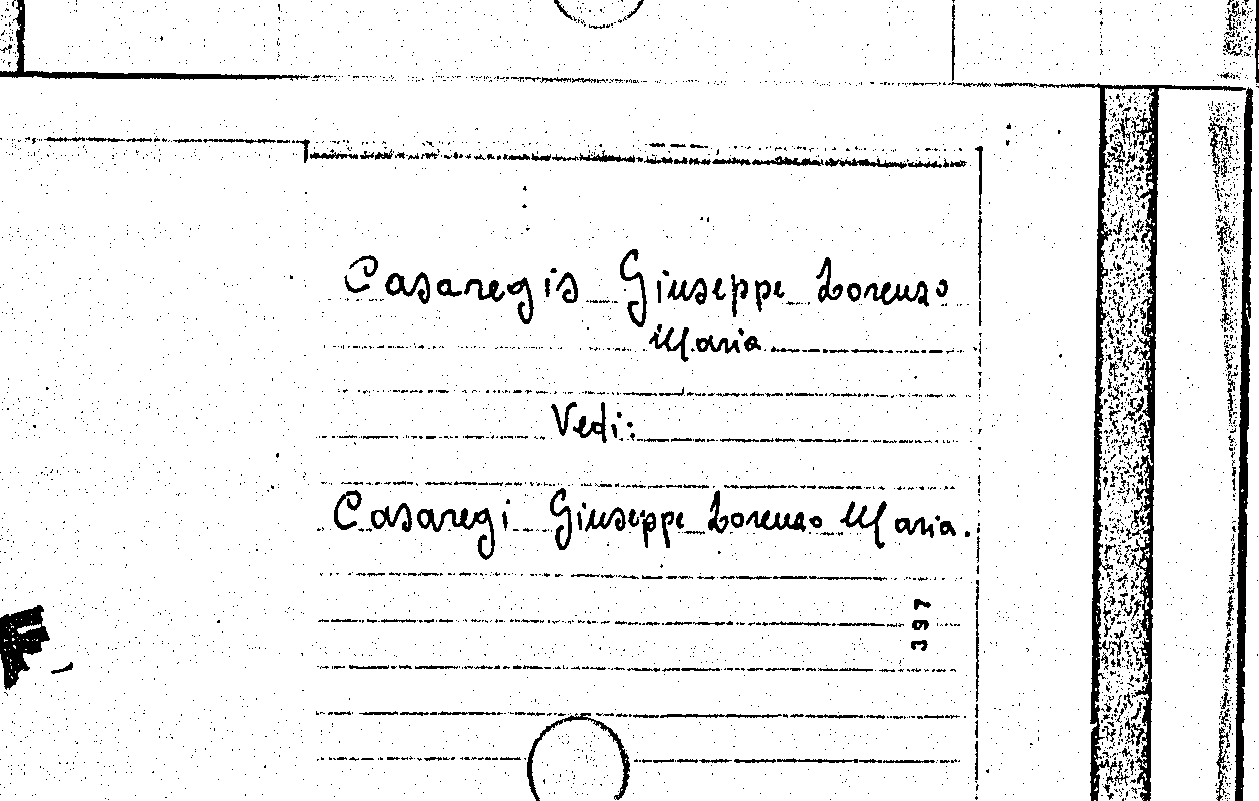 Casaregis Giuseppe Lorenzo
Maria
Vedi:
Casaregi Giuseppe Lorenzo Maria.
397